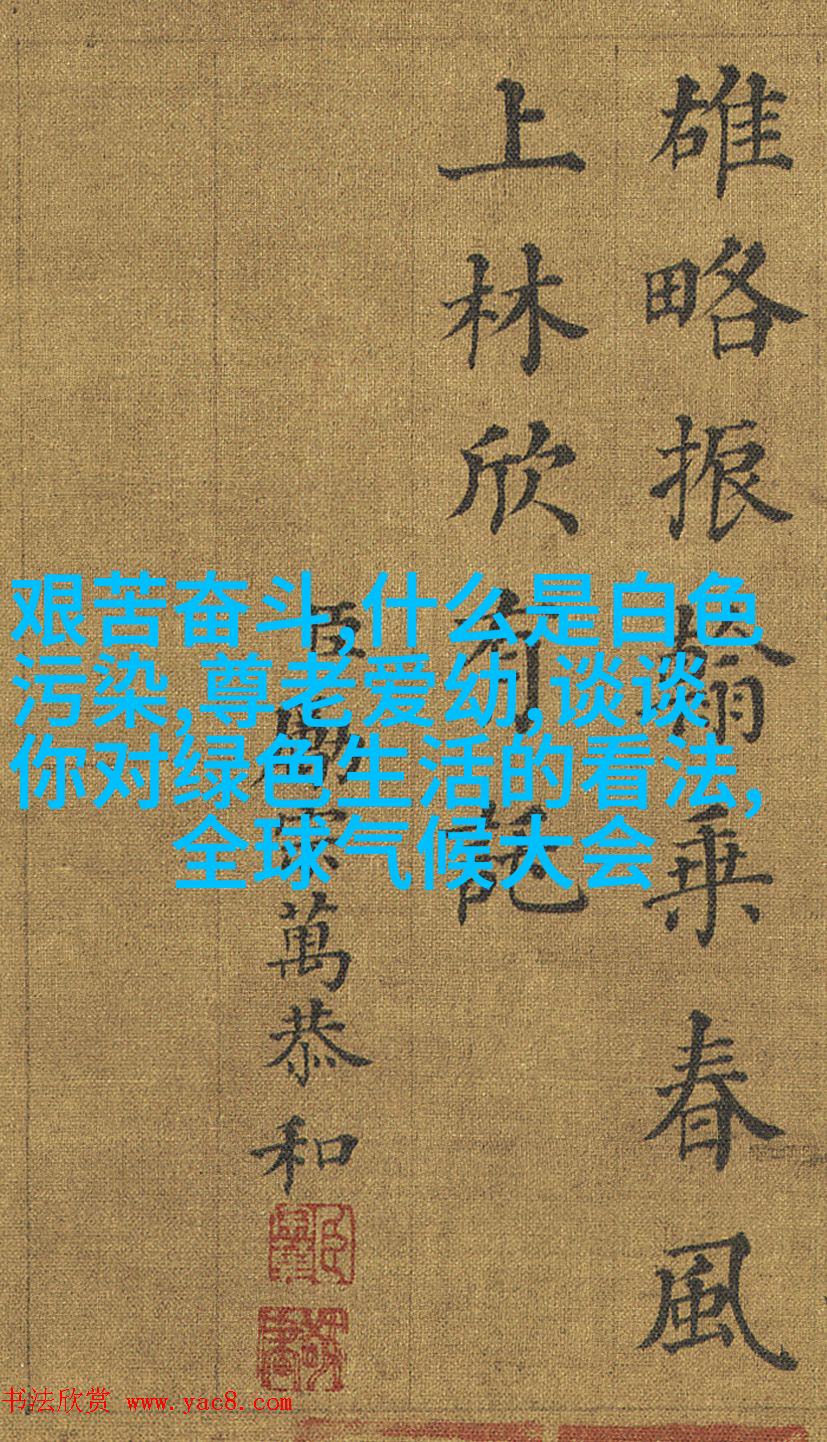 雄略振乘春風
上林欣有
臣勵宗萬恭和
艰苦奋斗,什么是白色
污染,尊老爱幼,谈谈
你对绿色生活的看法,
全球气候大会
书法欣赏 www.yac8.com